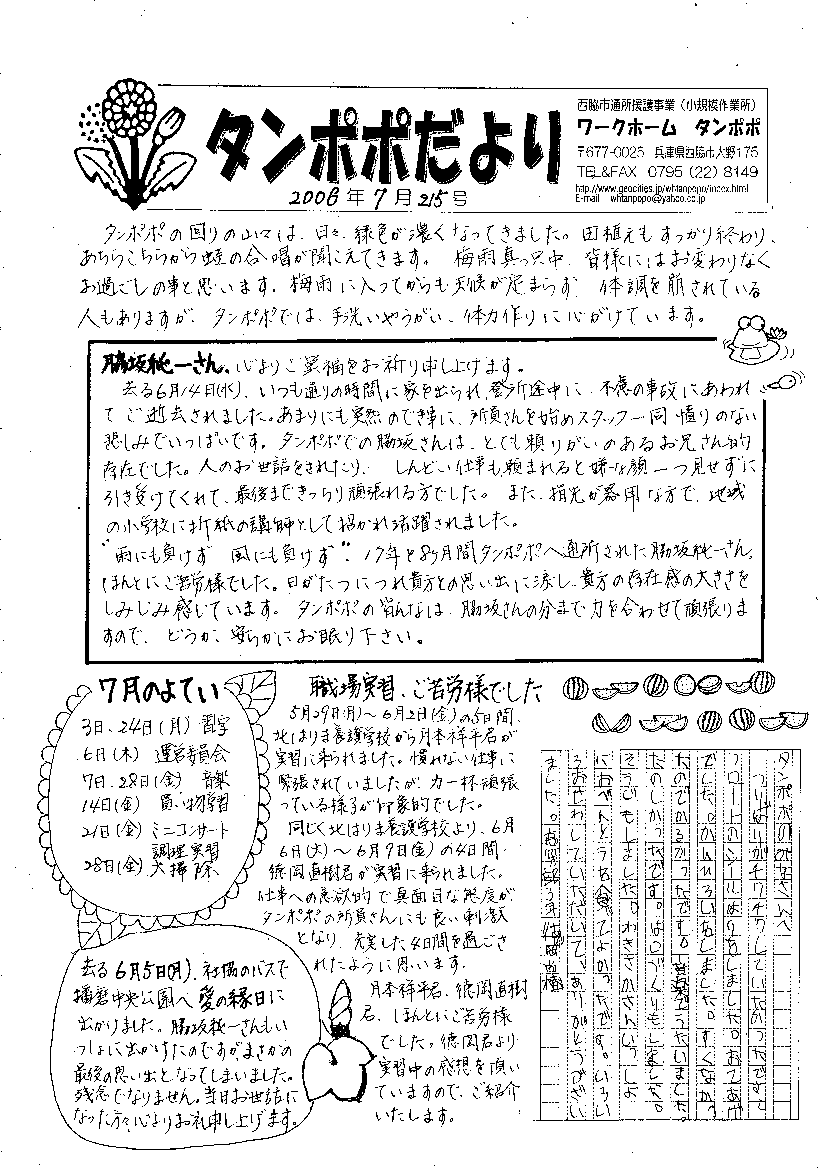 タンポポだより
2006年7月215号
西脇市通所援護事業（小規模作業所）
ワークホーム タンポポ
〒677-0025 兵庫県西脇市大野175
TEL&FAX 0795 (22) 8149
http://www.geocities.jp/whtanpopo/index.html
E-mail whtanpopo@yahoo.co.jp
タンポポの回りの山々は、日々、緑色が濃くなってきました。田植えもすっかり終わり、
あちらこちらから蛙の合唱が聞こえてきます。 梅雨真っ只中、皆様にはお変わりなく
お過ごしの事と思います。梅雨に入ってからも天候が定まらず、体調を崩されている
人もありますが、タンポポでは、手洗いやうがい、体力作りに心がけています。
脇坂純一さん、心よりご冥福をお祈り申し上げます。
去る6月14日(水)、いつも通りの時間に家を出られ、登所途中に、不慮の事故にあわれ
てご逝去されました。あまりにも突然のでき事に、所員さんを始めスタッフ一同憤りのない
悲しみでいっぱいです。タンポポでの脇坂さんは、とても頼りがいのあるお兄さん的
存在でした。人のお世話をされたり、しんどい仕事も頼まれると嫌な顔一つ見せずに
引き受けてくれて、最後まできっちり頑張れる方でした。また、指先が器用な方で、地域
の小学校に折紙の講師として招かれ活躍されました。
“雨にも負けず 風にも負けず”、17年と8ヶ月間タンポポへ通所された脇坂純一さん、
ほんとにご苦労様でした。日がたつにつれ貴方との思い出に涙し、貴方の存在感の大きさを
しみじみ感じています。タンポポの皆んなは、脇坂さんの分まで力を合わせて頑張りま
すので、どうか、安らかにお眠り下さい。
7月のよてい
3日、24日(月) 習字
6日(木) 運営委員会
7日、28日(金) 音楽
14日(金) 買い物学習
21日(金) ミニコンサート
調理実習
28日(金) 大掃除
職場実習、ご苦労様でした
5月29日(月)～6月2日(金)の5日間、
北はりま養護学校から月本祥平君が
実習に来られました。慣れない仕事に
緊張されていましたが、力一杯頑張
っている様子が印象的でした。
同じく北はりま養護学校より、6月
6日(火)～6月9日(金)の4日間、
徳岡直樹君が実習に来られました。
仕事への意欲的で真面目な態度が、
タンポポの所員さんにも良い刺激
となり、充実した4日間を過ごさ
れたように思います。
月本祥平君、徳岡直樹
君、ほんとにご苦労様
でした。徳岡君より
実習中の感想を頂い
ていますので、ご紹介
いたします。
去る6月5日(月)、社協のバスで
播磨中央公園へ愛の縁日に
出かけました。脇坂純一さんもい
っしょに出かけたのですがまさかの
最後の思い出となってしまいました。
残念でなりません。当日お世話に
なった方々心よりお礼申し上げます。
タンポポのみなさんへ
つりばりがチクチクしていたかったです。
フロートのシールはりをしました。おてあげ
でした。かいひろいをしました。すくなか
たのでかるかったです。音楽うたいました。
たのしかったです。はこづくりもしました。
そうでもしました。わきさかさんいっしょ
におべんとうを食べてよかったです。いろい
ろおせわしていただいて、ありがとうござい
ました。